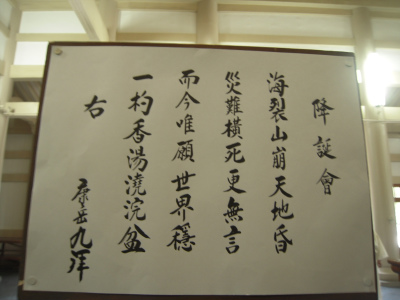 降誕會
海裂山崩天地昏
災難橫死更無言
而今唯願世界穩
一杓香湯澆浣盆
右